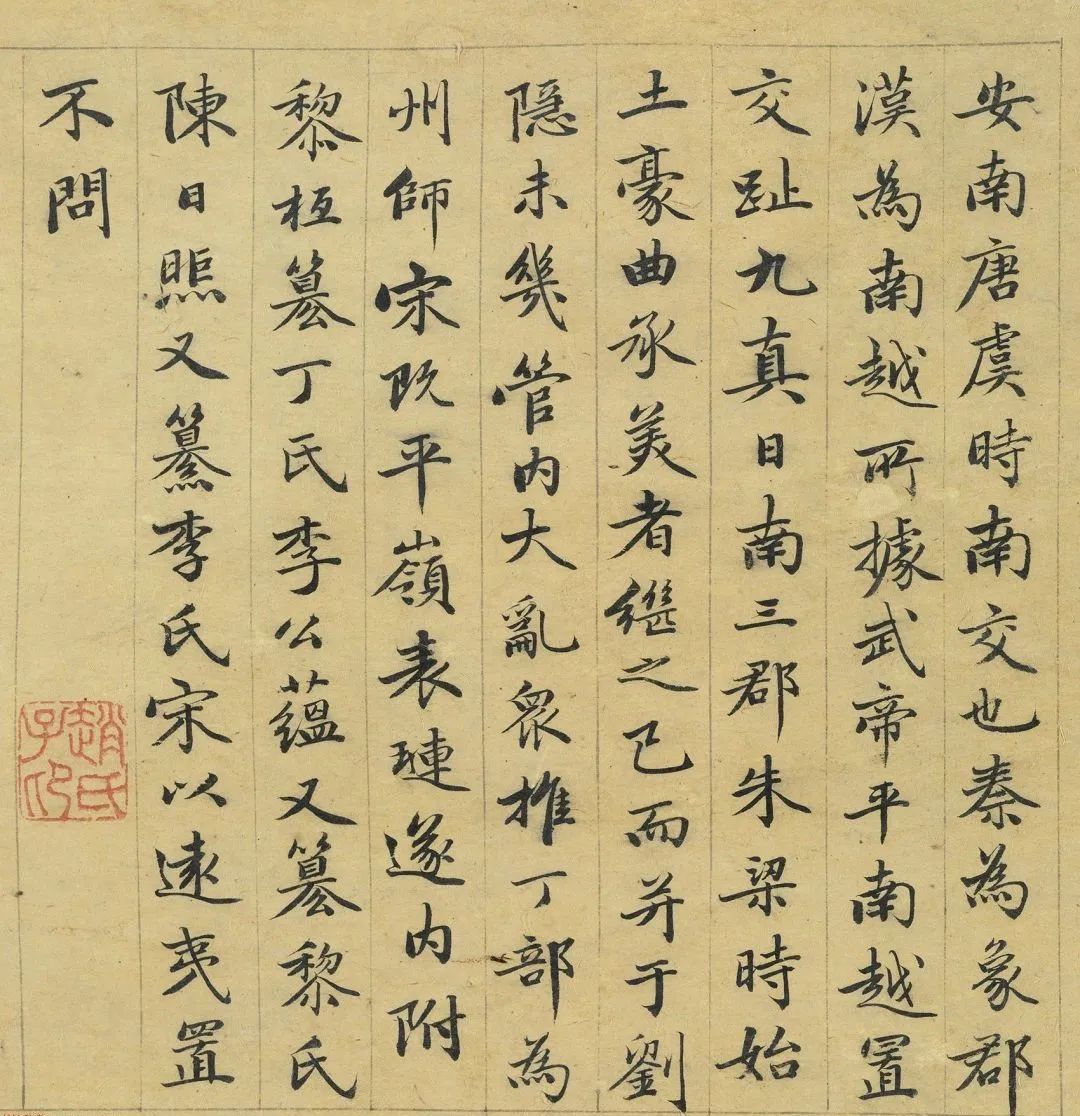 安南唐虞時南交也秦為象郡
漢為南越所據武帝平南越置
交趾九真日南三郡朱梁時始
土豪曲承美者繼之已而并于劉
隱未幾管内大亂眾推丁部為
州師宋既平嶺表璉遂内附
黎桓篡丁氏李公蘊又篡黎氏
陳日煚又纂李氏宋以遠夷置
不問
趙氏子印